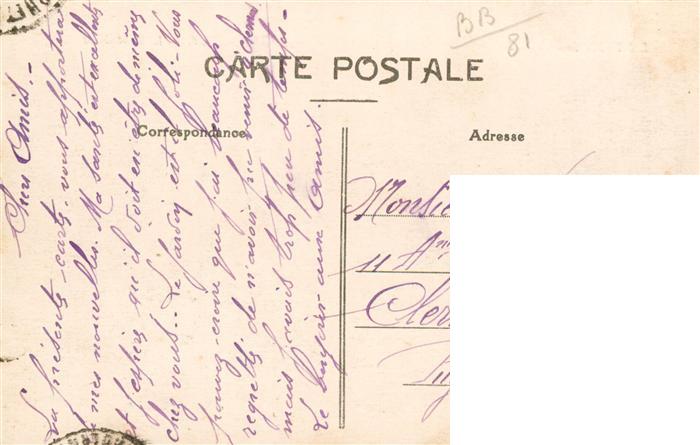 BB
81
CARTE POSTALE
Correspondance
Adresse
Chers Amis. -
La présente carte vous apportera
mes nouvelles. Ma santé est excellente
et j'espère qu'il doit en être de même
chez vous. - Le Jardin est-il joli. Vous
pouvez croire que j'ai beaucoup
regretté de n'avoir pu venir
mais j'avais trop peu de temps -
Amis.
11